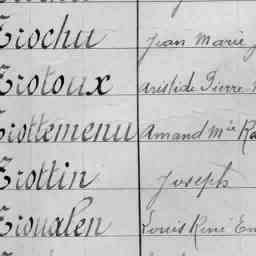 Trochu Jean Marie
Trotoux Aristide Pierre
Trottemenu Amand Mie
Trottin Joseph
Troualen Louis René